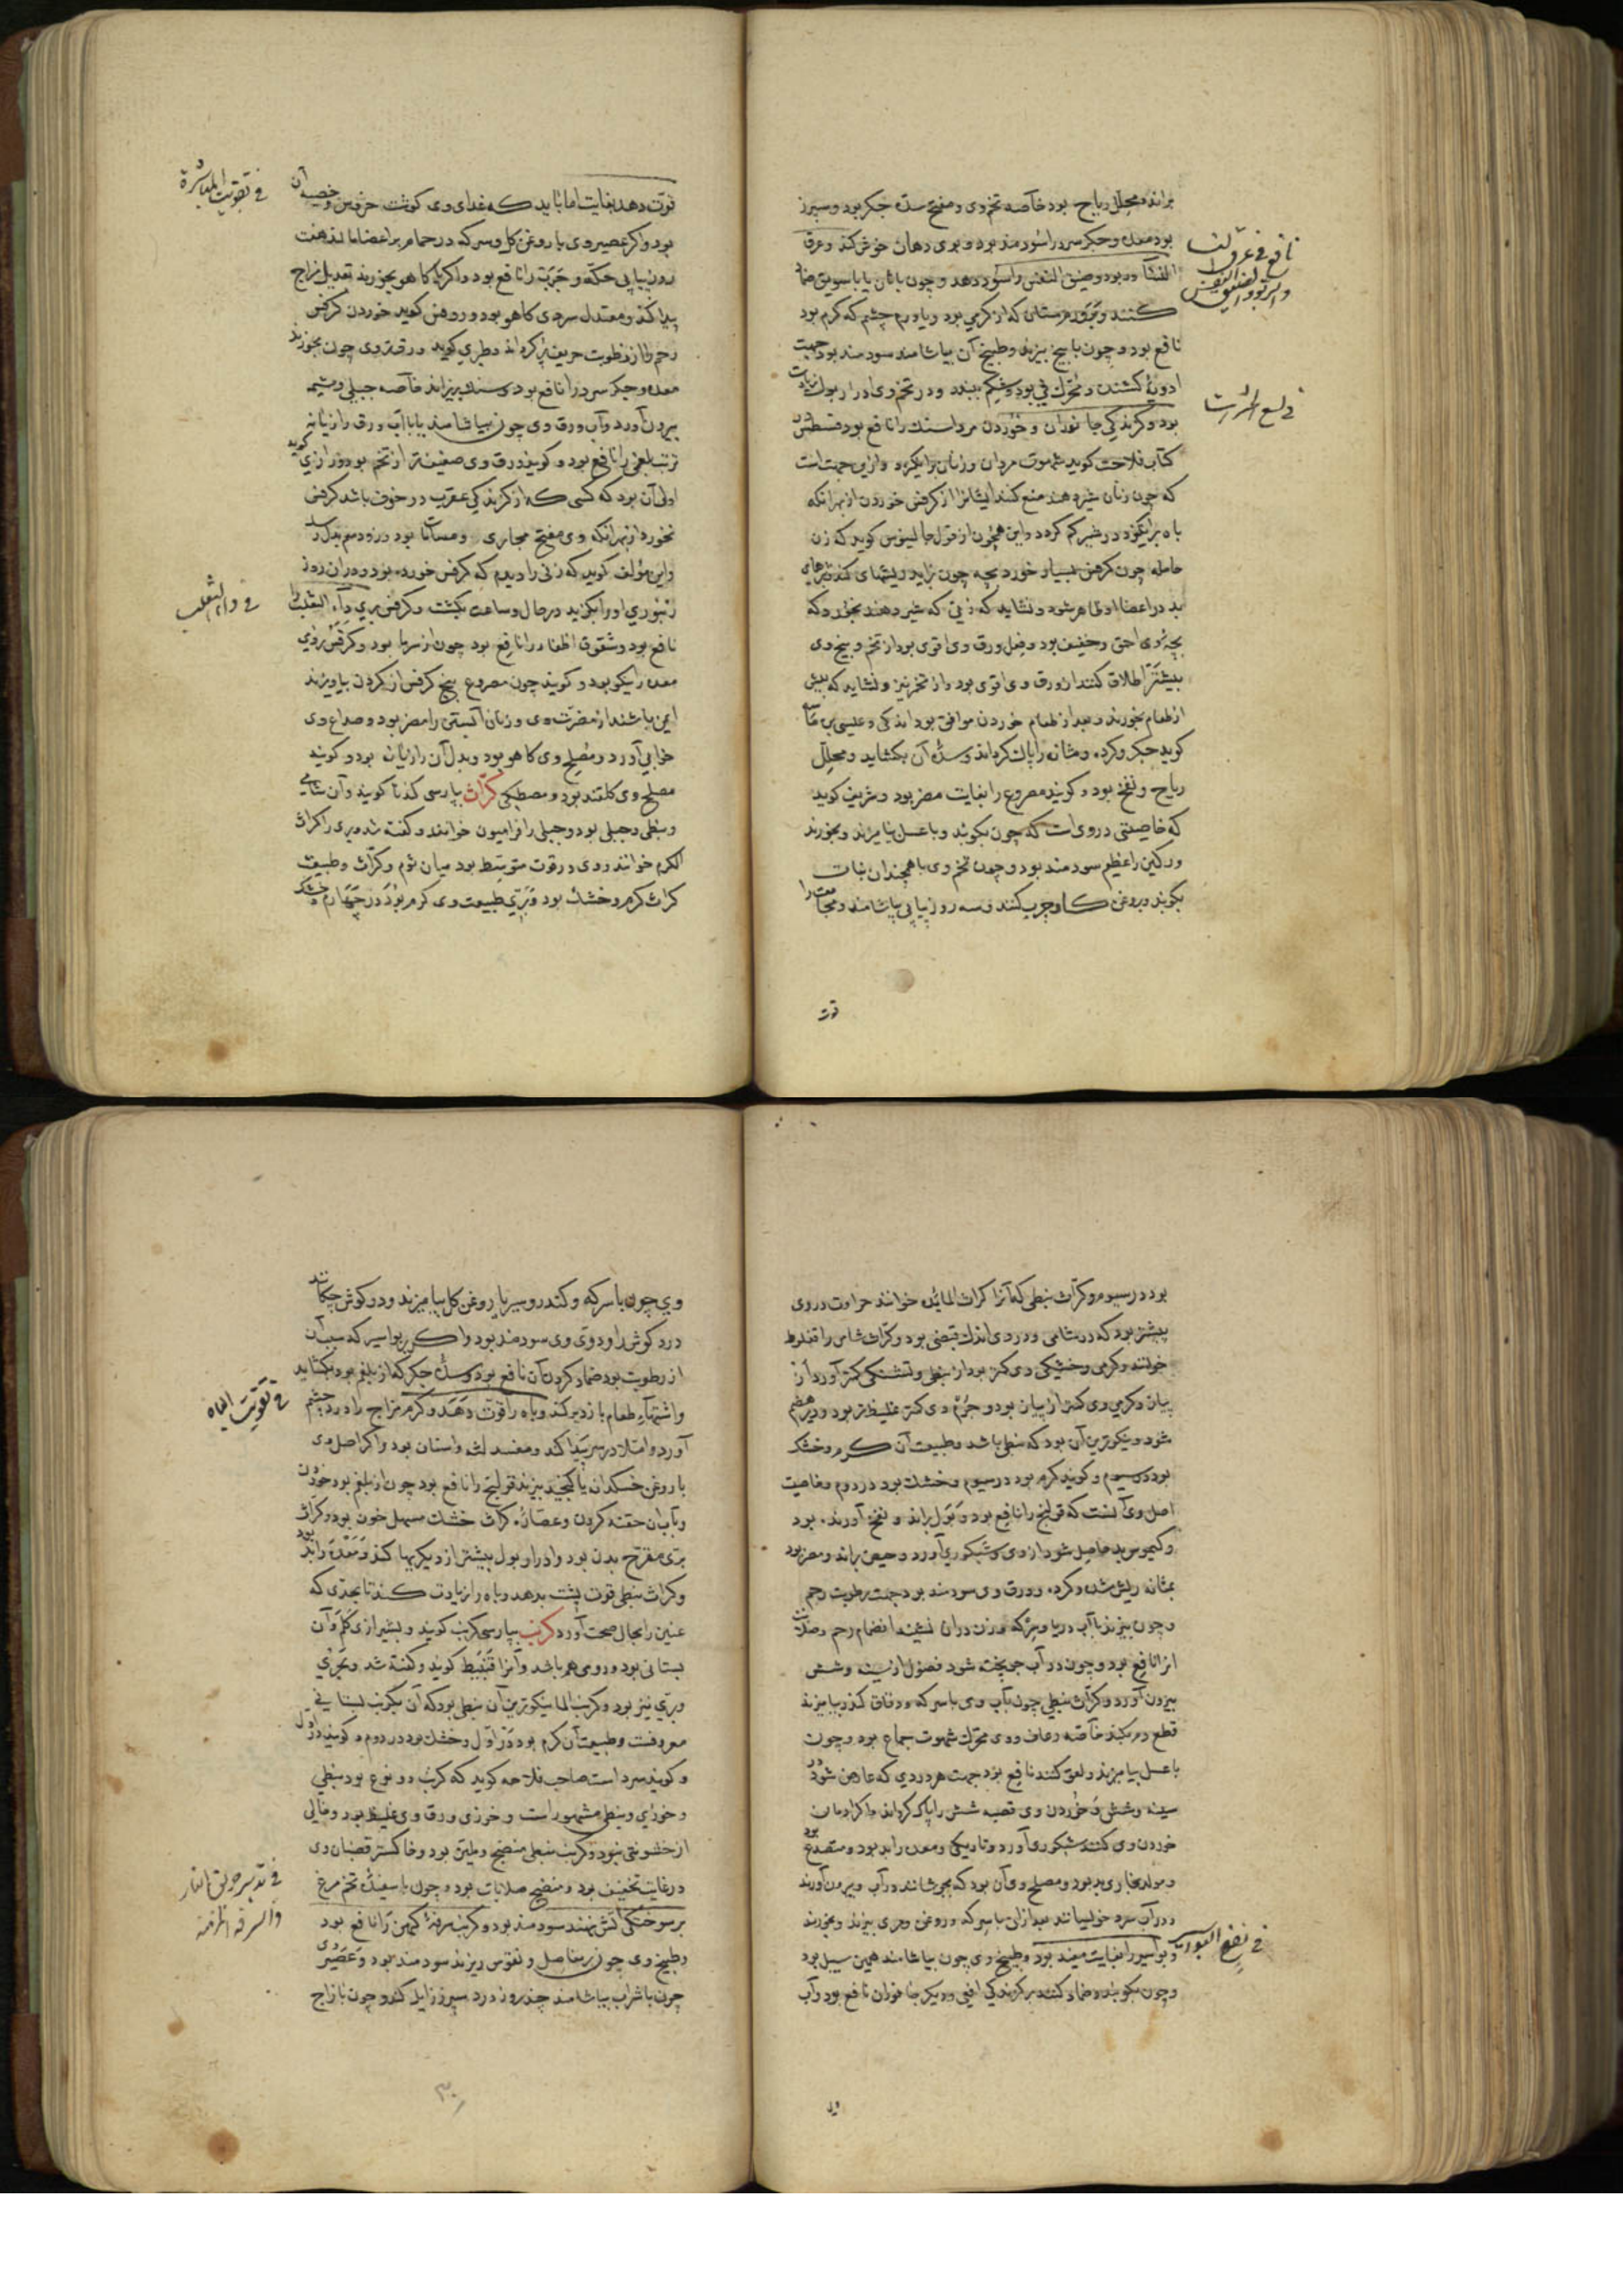 براند و محلل ریاح بود خاصه تخم وی و مفتح سده جگر بود و سپرز
بود معده و جگر سرد را سودمند بود و بوی دهان خوش کند و عرق
النسا و ضیق النفس را سود دهد و چون با نان یا با سویق ضماد
کنند و بر ورم پستان که از گرمی بود و یا ورم چشم که گرم بود
نافع بود و چون با بیخ بپزند و طبیخ آن بیاشامند سودمند بود جهت
ادویهٔ کشنده و محرک قی بود و شکم ببندد و در تخم وی ادرار بول زیادت
بود و گزندگی جانوران و خوردن مرداسنک را نافع بود قسطس در
کتاب فلاحت کوید شهوت مردان و زنان برانگیزد و ازین جهت است
که چون زنان شیر دهند منع کنند ایشانرا از کرفس خوردن از بهر آنکه
باه برانگیزد و شیر کم کردد و این همچون از قول جالینوس کوید که زن
حامله چون کرفس بسیار خورد بچه چون بزاید ریشهای کنده و بثرهای
بد در اعضاء او ظاهر شود و نشاید که زنی که شیر دهد بخورد که
بچهٔ وی احمق و خفیف بود و فعل ورق وی اقوی بود از تخم و بیخ وی
بیشتر اطلاق کند از ورق وی اقوی بود و از تخم نیز و نشاید که پیش
از طعام بخورند و بعد از طعام خوردن موافق بود اندکی و عیسی بن ماسه
کوید جگر و کرده و مثانه را پاک کرداند و سدهٔ آن بکشاید و محلل
ریاح و نفخ بود و کویند مصروع را بغایت مضر بود و شریف کوید
که خاصیتی در وی است که چون بکوبند و با عسل بیامیزند و بخورند
ورکین را عظیم سودمند بود و چون تخم وی با همچندان نبات
بکوبند و بروغن کاو چرب کنند و سه روز پیاپی بیاشامند و مجامعت را
نافع فی عرق النسا
والربو والضیق النفس
فی لسع الحشرات
قوت
قوت دهد بغایت اما باید که غذای وی کوشت خروس و خصیهٔ آن
بود و اکر عصیر وی با روغن کل و سرکه در حمام بر اعضا مالند هفت
روز پیاپی حکه و جرب را نافع بود و اکر با کاهو بخورند تعدیل مزاج
پیدا کند و معتدل سردی کاهو بود و روفس کوید خوردن کرفس
رحم را از رطوبت حریفه پر کرداند و طبری کوید ورق تر وی چون بخورند
معده و جگر سرد را نافع بود و سنک بریزاند خاصه جبلی و مشیمه
بیرون آورد و آب ورق وی چون بیاشامند یا با آب ورق رازیانه
تب بلغمی را نافع بود و کویند ورق وی ضعیفتر از تخم بود و رازی کوید
اولی آن بود که کسی که از گزندگی عقرب در خوف باشد کرفس
نخورد از بهر آنکه وی مفتح مجاری و مسامات بود و زود سم بدل رسد
و این مؤلف کوید که زنی را دیدم که کرفس خورده بود و در آن روز
زنبوری او را بگزید در حال و ساعت بکشت و کرفس بری داء الثعلب را
نافع بود و شقوق اظفار را نافع بود چون از سرما بود و کرفس بروی
معده را نیکو بود و کویند چون مصروع بیخ کرفس از کردن بیاویزند
ایمن باشند از مضرت وی و زنان آبستن را مضر بود و صداع وی
خوابی آورد و مصلح وی کاهو بود و بدل آن رازیانه بود و کویند
مصلح وی کلقند بود و مصطکی کراث بپارسی کندنا کویند و آن شامی
و نبطی و جبلی بود و جبلی را فراسیون خوانند و کفته شد و بری را کراث
الکرم خوانند و وی در قوت متوسط بود میان ثوم و کراث و طبیعت
کراث گرم و خشک بود و بری طبیعت وی گرم بود در چهارم و خشک
فی تقویت المباشرة
فی داء الثعلب
بود در سیوم و کراث نبطی که آنرا کراث المایده خوانند حرارت در وی
بیشتر بود که در شامی و در وی اندک قبضی بود و کراث شامی را قفلوط
خوانند و گرمی و خشکی وی کمتر بود از نبطی و تشنگی کمتر آورد از
پیاز و گرمی وی کمتر از پیاز بود و جرم وی کمتر غلیظ تر بود و دیر هضم
شود و نیکوترین آن بود که نبطی باشد و طبیعت آن گرم و خشک
بود در سیوم و کویند گرم بود در سیوم و خشک بود در دوم و خاصیت
اصل وی آنست که قولنج را نافع بود و بول براند و نفخ آورنده بود
و کیموس بد حاصل شود از وی و شبکوری آورد و حیض براند و مضر بود
بمثانه ریش شده و کرده و ورق وی سودمند بود جهت رطوبت رحم
و چون بپزند با آب دریا و سرکه و زن در آن نشیند انضمام رحم و صلابت
آنرا نافع بود و چون در آب جو پخته شود فضول از سینه و شش
بیرون آورد و کراث نبطی چون باب وی با سرکه و دقاق کندر بیامیزند
قطع دم بکند خاصه رعاف و وی محرک شهوت جماع بود و چون
با عسل بیامیزند و لعق کنند نافع بود جهت هر دردی که عارض شود در
سینه و شش و خوردن وی قصبه شش را پاک کرداند و اکر ادمان
خوردن وی کنند شبکوری آورد و تاریکی و معده را بد بود و مصدع بود
و مولد بخاری بد بود و مصلح وی آن بود که بجوشانند در آب و بیرون آورند
و در آب سرد خوابانند بعد از آن با سرکه و روغن و مری بپزند و بخورند
و بواسیر را بغایت مفید بود و طبیخ وی چون بیاشامند همین سبیل بود
و چون بکوبند و ضماد کنند بر گزندگی افعی و دیگر جانوران نافع بود و آب
فی نفع البواسیر
وی
وی چون با سرکه و کندر و شیر یا روغن کل بیامیزند و در کوش چکانند
درد کوش را و دوی وی سودمند بود و اکر بر بواسیر که سبب آن
از رطوبت بود ضماد کردن آن نافع بود و سدهٔ جگر که از بلغم بود بکشاید
و اشتهاء طعام بازدید کند و باه را قوت دهد و گرم مزاج را درد چشم
آورد و امتلا در سر پیدا کند و مفسد لثه و اسنان بود و اکر اصل وی
با روغن خسکدانه یا کنجید بپزند قولنج را نافع بود چون از بلغم بود خوردن
و بآن حقنه کردن و عصاره کراث خشک مسهل خون بود و کراث
بری مقرح بدن بود و ادرار بول بیشتر از دیگریها کند و معده را بد بود
و کراث نبطی قوت پشت بدهد و باه را زیادت کند تا بحدی که
عنین را بحال صحت آورد کرنب بپارسی کرنب کویند و بشیرازی کلم و آن
بستانی بود و رومی هم باشد و آنرا قنبیط کویند و کفته شد و بحری
و بری نیز بود و کرنب الما نیکوترین آن نبطی بود که آن کرنب بستانی
معروفست و طبیعت آن گرم بود در اول و خشک بود در دوم و کویند در اول
و کویند سرد است صاحب فلاحه کوید که کرنب دو نوع بود نبطی
و خوزی و نبطی مشهور است و خوزی ورق وی غلیظ بود و خالی
از خشونتی نبود و کرنب نبطی منضج و ملین بود و خاکستر قضبان وی
در غایت تجفیف بود و منضج صلابات بود و چون با سفیدهٔ تخم مرغ
بر سوختگی آتش نهند سودمند بود و کرنب سرفهٔ کهن را نافع بود
و طبیخ وی چون بر مفاصل و نقرس ریزند سودمند بود و عصیر وی
چون با شراب بیاشامند چند روز درد سپرز زایل کند و چون با زاج
فی تقویت الباه
فی تدبیر حریق النار
والسرفه المزمنة